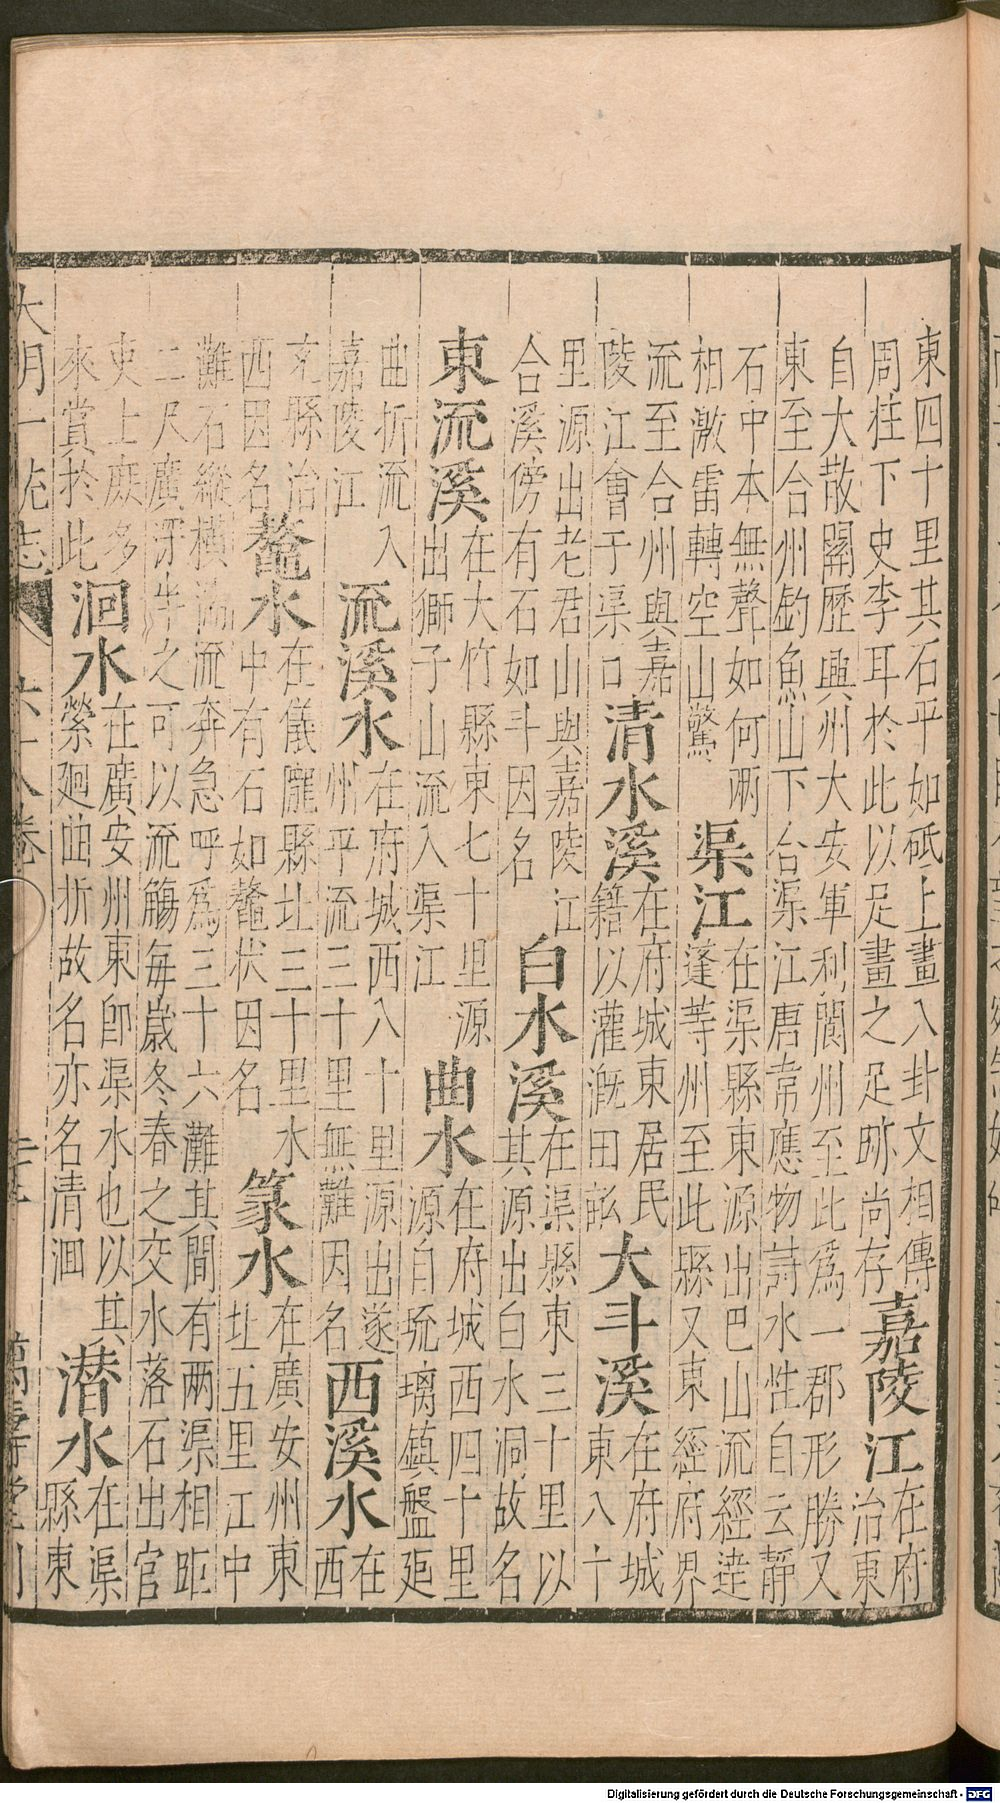 東四十里其石平如砥上畫八卦文相傳
周柱下史李耳於此以足畫之足跡尚存
嘉陵江
在府
治東
自大散關歷興州大安軍利閬州至此爲一郡形勝又
東至合州釣魚山下合渠江唐韋應物詩水性自云靜
石中本無聲如何兩
相激雷轉空山驚
渠江
在渠縣東源出巴山流經達
蓬等州至此縣又東經府界
流至合州與嘉
陵江會于渠口
清水溪
在府城東居民
籍以灌溉田畝
大斗溪
在府城
東八十
里源出老君山與嘉陵江
合溪傍有石如斗因名
白水溪
在渠縣東三十里以
其源出白水洞故名
東流溪
在大竹縣東七十里源
出獅子山流入渠江
曲水
在府城西四十里
源自琉璃鎮盤𢌞
曲折流入
嘉陵江
流溪水
在府城西八十里源出遂
州平流三十里無難因名
西溪水
在
西
充縣治
西因名
鼇水
在儀隴縣北三十里水
中有石如鼇状因名
篆水
在廣安州東
北五里江中
灘石縱橫湍流奔急呼爲三十六灘其間有兩渠相距
二尺廣之可以流觴每歲冬春之交水落石出官
吏士庶多
來賞於此
洄水
在廣安州東卽渠水也以其
縈廻曲折故名亦名清洄
潛水
在渠
縣東
大明一統志 六十八卷 萬壽堂刊
Digitalisierung gefördert durch die Deutsche Forschungsgemeinschaft - DFG